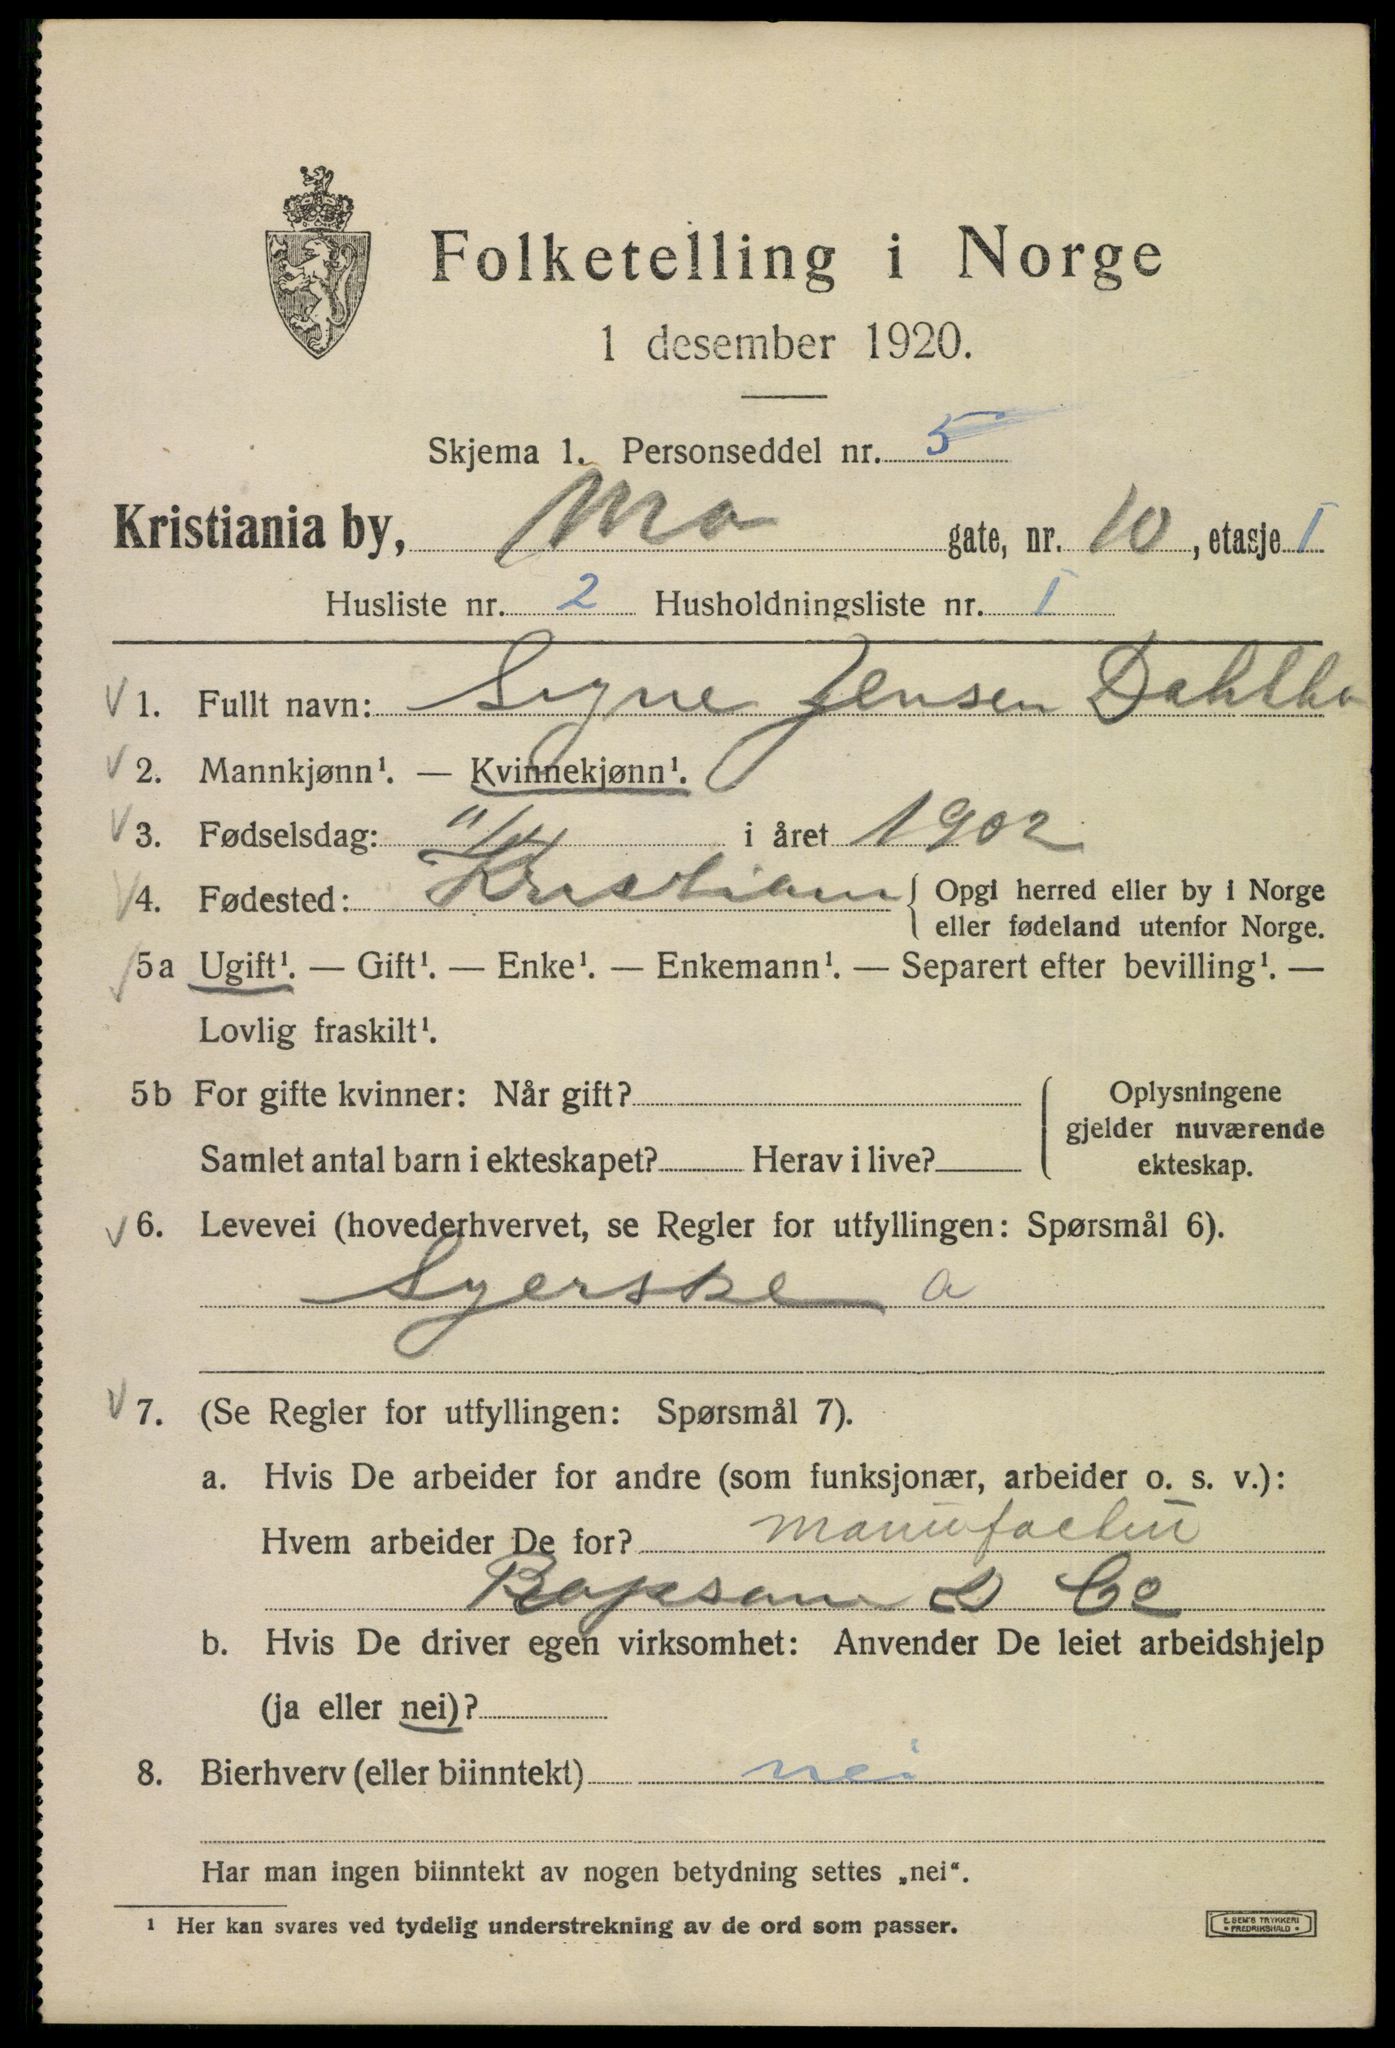 Folketelling i Norge
1 desember 1920.
Skjema 1. Personseddel nr. 5
Kristiania by, Mo gate, nr. 10, etasje I
Husliste nr. 2 Husholdningsliste nr. I
1. Fullt navn: Signe Jensen
2. Mannkjønn¹. — Kvinnekjønn¹.
3. Fødselsdag: i året 1902
4. Fødested: Kristiania { Opgi herred eller by i Norge
eller fødeland utenfor Norge.
5a Ugift¹. — Gift¹. — Enke¹. — Enkemann¹. — Separert efter bevilling¹. —
Lovlig fraskilt¹.
5b For gifte kvinner: Når gift? { Oplysningene
gjelder nuværende
Samlet antal barn i ekteskapet? Herav i live? ekteskap.
6. Levevei (hovederhvervet, se Regler for utfyllingen: Spørsmål 6).
Syerske a
7. (Se Regler for utfyllingen: Spørsmål 7).
a. Hvis De arbeider for andre (som funksjonær, arbeider o. s. v.):
Hvem arbeider De for? manufactur
& Co
b. Hvis De driver egen virksomhet: Anvender De leiet arbeidshjelp
(ja eller nei)?
8. Bierhverv (eller biinntekt) nei
Har man ingen biinntekt av nogen betydning settes „nei“.
¹ Her kan svares ved tydelig understrekning av de ord som passer.
E. SEM'S TRYKKERI
• FREDRIKSHALD •